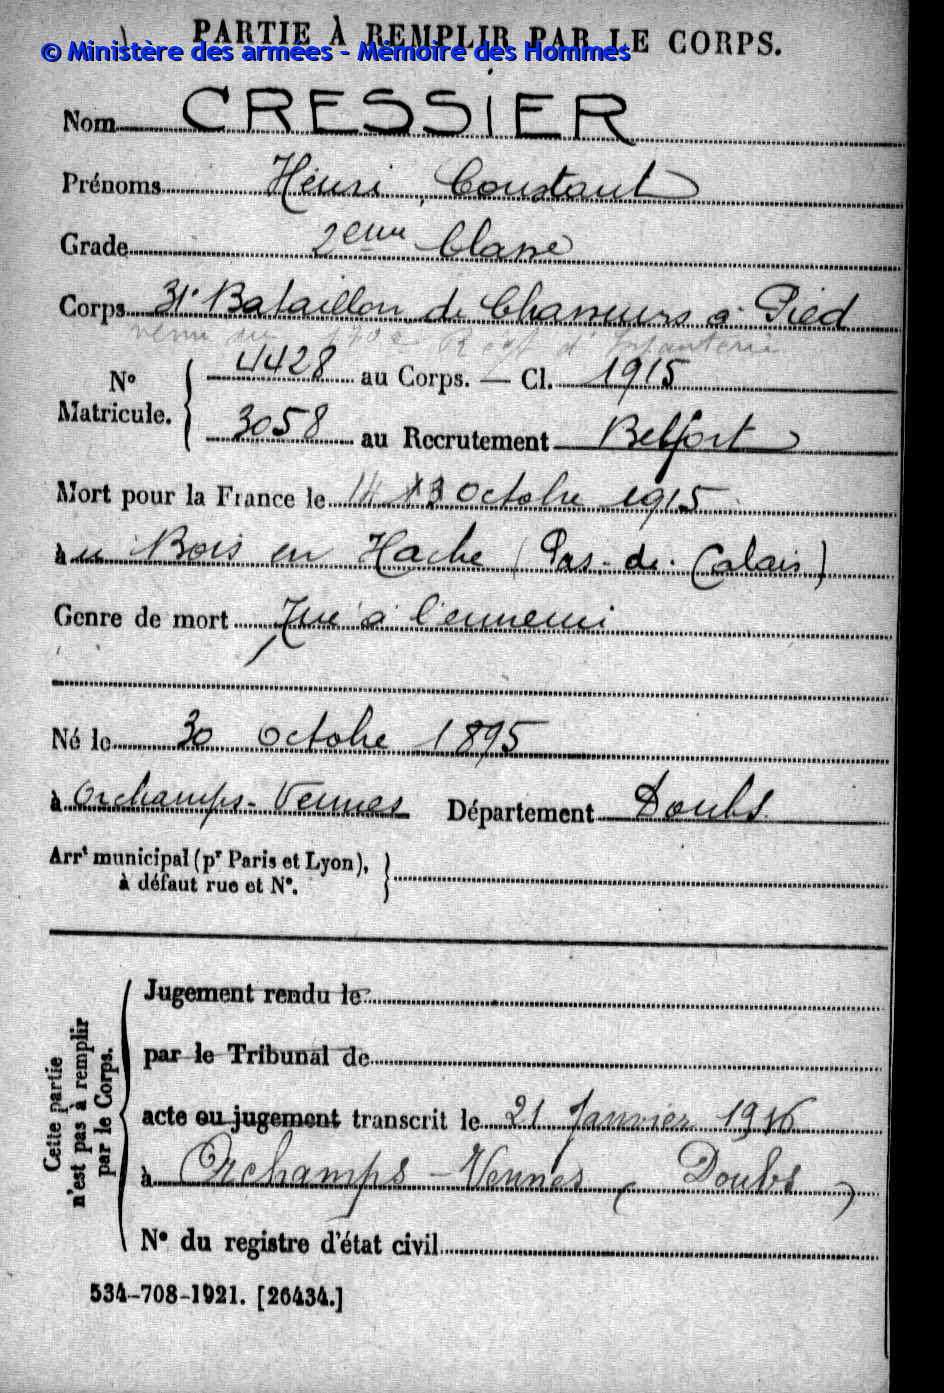 PARTIE À REMPLIR PAR LE CORPS.
© Ministère des armées - Mémoire des Hommes
Nom CRESSIER
Prénoms Henri, Constant
Grade 2eme Classe
Corps 31e Bataillon de Chasseurs à Pied
venu du 170e Regt d'Infanterie
No Matricule. { 4428 au Corps. — Cl. 1915
3058 au Recrutement Belfort
Mort pour la France le 14 13 Octobre 1915
au Bois en Hache (Pas-de-Calais)
Genre de mort Tué à l'ennemi
Né le 30 Octobre 1895
à Orchamps-Vennes Département Doubs
Arrt municipal (pr Paris et Lyon), à défaut rue et No.
Cette partie n'est pas à remplir par le Corps.
Jugement rendu le
par le Tribunal de
acte ou jugement transcrit le 21 Janvier 1916
à Orchamps-Vennes (Doubs)
No du registre d'état civil
534-708-1921. [26434.]